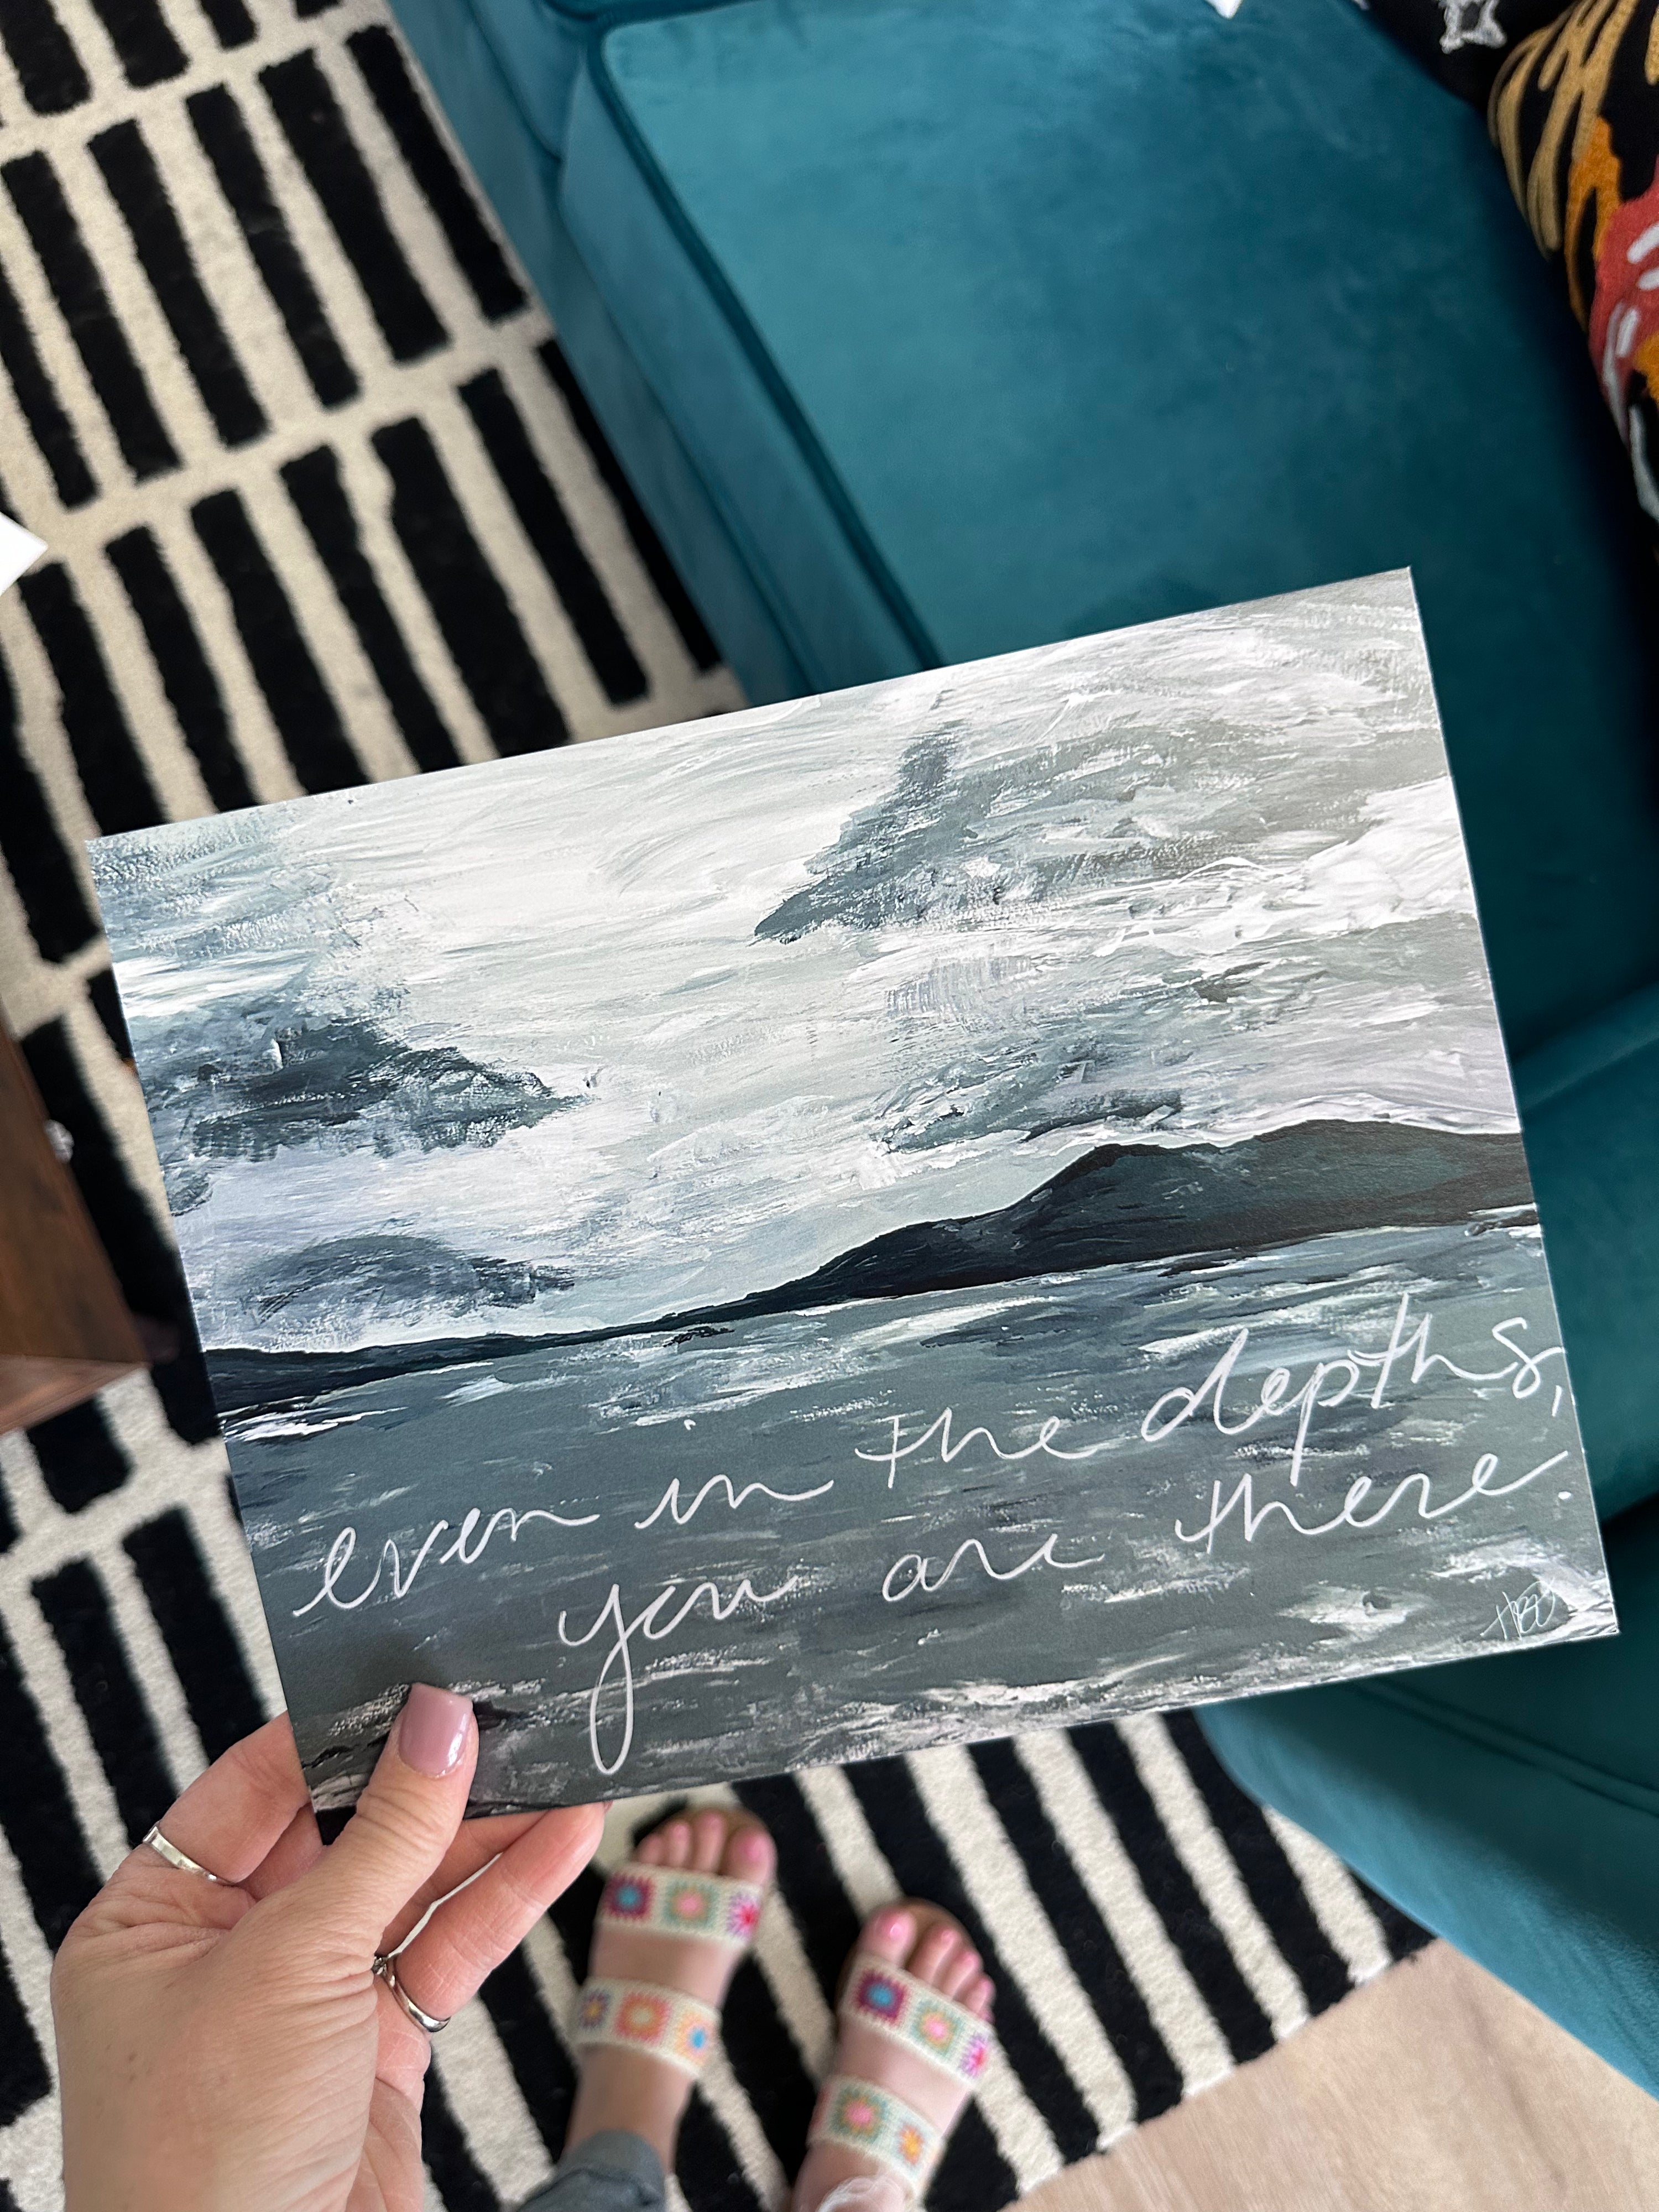 even in the depths,
you are there.